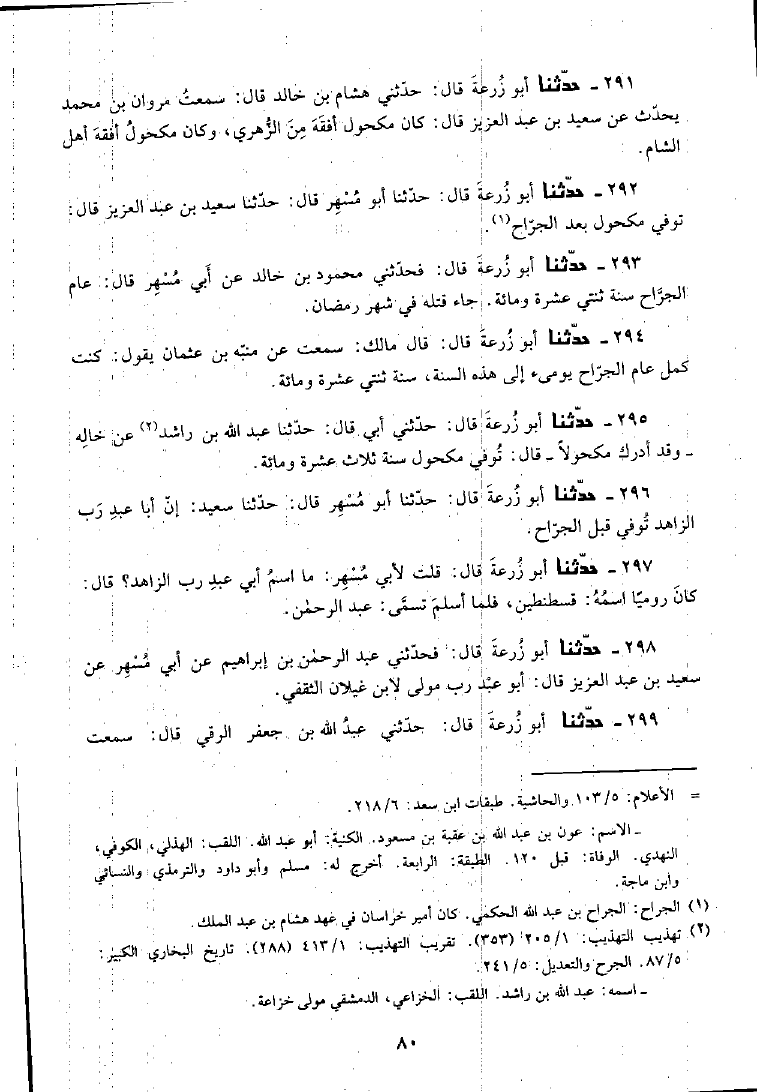 ٢٩١ ـ حدّثنا أبو زُرعةَ قال: حدّثني هشام بن خالد قال: سمعتُ مروان بن محمد
يحدّث عن سعيد بن عبد العزيز قال: كان مكحول أفقَهَ مِنَ الزُّهري، وكان مكحولُ أفقهَ أهل
الشام.
٢٩٢ ـ حدّثنا أبو زُرعةَ قال: حدّثنا أبو مُسْهِر قال: حدّثنا سعيد بن عبد العزيز قال:
توفي مكحول بعد الجرّاح(١).
٢٩٣ ـ حدّثنا أبو زُرعةَ قال: فحدّثني محمود بن خالد عن أَبي مُسْهِر قال: عام
الجرَّاح سنة ثنتي عشرة ومائة. جاء قتله في شهر رمضان.
٢٩٤ ـ حدّثنا أبو زُرعةَ قال: قال مالك: سمعت عن منبّه بن عثمان يقول: كنت
كمل عام الجرّاح يومىء إلى هذه السنة، سنة ثنتي عشرة ومائة.
٢٩٥ ـ حدّثنا أبو زُرعةَ قال: حدّثني أبي قال: حدّثنا عبد الله بن راشد(٢) عن خالِه
ـ وقد أدرك مكحولاً ـ قال: تُوفي مكحول سنة ثلاث عشرة ومائة.
٢٩٦ ـ حدّثنا أبو زُرعةَ قال: حدّثنا أبو مُسْهِر قال: حدّثنا سعيد: إنّ أبا عبدِ رَب
الزاهد تُوفي قبل الجرّاح.
٢٩٧ ـ حدّثنا أبو زُرعةَ قال: قلت لأبي مُسْهِر: ما اسمُ أبي عبدِ رب الزاهد؟ قال:
كانَ روميّا اسمُهُ: قسطنطين، فلما أسلمَ تسمَّى: عبد الرحمٰن.
٢٩٨ ـ حدّثنا أبو زُرعةَ قال: فحدّثني عبد الرحمٰن بن إبراهيم عن أبي مُسْهِر عن
سعيد بن عبد العزيز قال: أبو عبْد رب مولى لابن غيلان الثقفي.
٢٩٩ ـ حدّثنا أبو زُرعةَ قال: حدّثني عبدُ الله بن جعفر الرقي قال: سمعت
= الأعلام: ١٠٣/٥ والحاشية. طبقات ابن سعد: ٢١٨/٦.
ـ الاسم: عون بن عبد الله بن عقبة بن مسعود. الكنية: أبو عبد الله. اللقب: الهذلي، الكوفي،
النهدي. الوفاة: قبل ١٢٠. الطبقة: الرابعة. أخرج له: مسلم وأبو داود والترمذي والنسائي
وابن ماجة.
(١) الجراح: الجراح بن عبد الله الحكمي. كان أمير خراسان في عهد هشام بن عبد الملك.
(٢) تهذيب التهذيب: ٢٠٥/١ (٣٥٣). تقريب التهذيب: ٤١٣/١ (٢٨٨). تاريخ البخاري الكبير:
٨٧/٥. الجرح والتعديل: ٢٤١/٥.
ـ اسمه: عبد الله بن راشد. اللقب: الخزاعي، الدمشقي مولى خزاعة.
٨٠